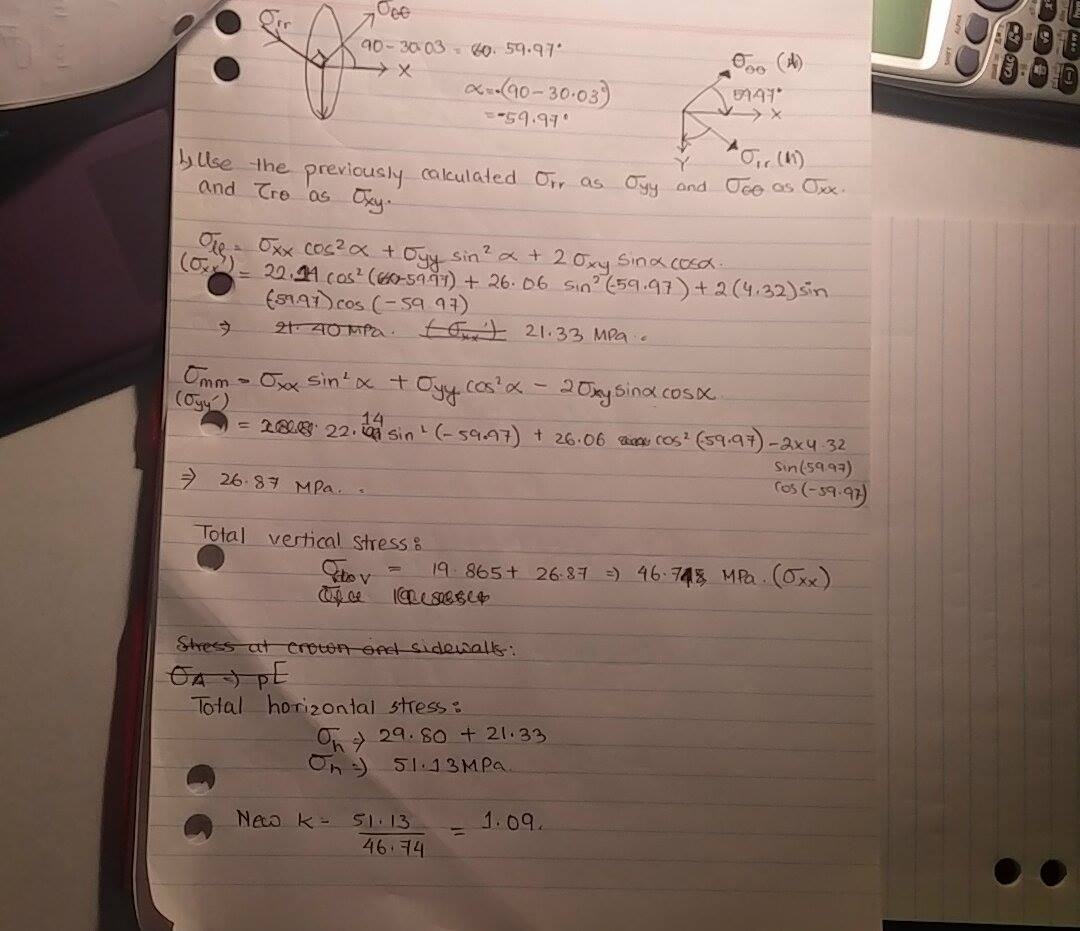 σrr
σθθ
90-30.03 = 60. 59.97°
X
α=-(90-30.03°)
=-59.97°
σθθ (A)
59.97°
X
Y
Use the previously calculated σrr as σyy and σθθ as σxx.
and τrθ as σxy.
= σxx cos²α + σyy sin²α + 2σxy sinα cosα.
(σxx')
= 22.14 cos²(-59.97) + 26.06 sin²(-59.97) + 2(4.32) sin
(-59.97) cos(-59.97)
⇒ 21.40 MPa. (σxx') 21.33 MPa.
σmm = σxx sin²α + σyy cos²α - 2σxy sinα cosα
(σyy')
14
= 22. sin²(-59.97) + 26.06 cos²(-59.97) - 2×4.32
sin(-59.97)
cos(-59.97)
⇒ 26.87 MPa.
Total vertical stress:
= 19.865 + 26.87 ⇒ 46.74 MPa. (σxx)
Stress at crown and sidewalls:
σA ⇒ p[
Total horizontal stress:
σh ⇒ 29.80 + 21.33
σh ⇒ 51.13 MPa.
New k = 51.13 = 1.09.
46.74
SHIFT
ALPHA
CALC
(-)